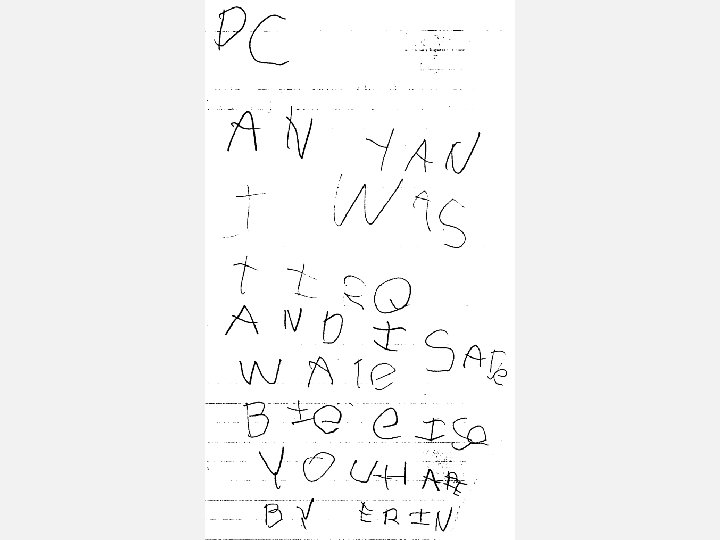 DC
AN YAN
I WAS
TIRQ
AND I SAFe
WATe
BIe eISe
YOUHAPE
BY ERIN